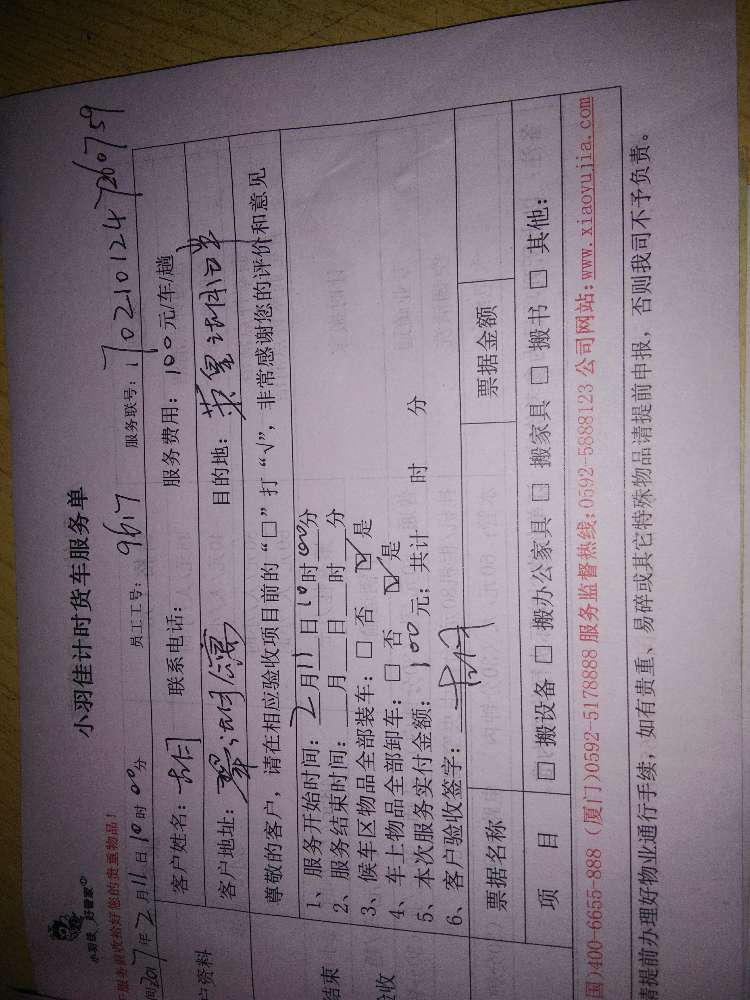 小羽佳计时货车服务单
小羽佳 好管家
服务前收拾好您的贵重物品！
间2017年2月11日10时00分 员工工号：9617 服务联号：1702101247260759
户资料
客户姓名： 联系电话： 服务费用：100元/车/趟
客户地址： 目的地：
尊敬的客户，请在相应验收项目前的“□”打“√”，非常感谢您的评价和意见
结束
验收
1、服务开始时间：2月11日10时00分
2、服务结束时间：__月__日__时__分
3、候车区物品全部装车：□ 否 ☑ 是
4、车上物品全部卸车：□ 否 ☑ 是
5、本次服务实付金额：100元；共计 时 分
6、客户验收签字：
票据名称 票据金额
项 目 □ 搬设备 □ 搬办公家具 □ 搬家具 □ 搬书 □ 其他：
国)400-6655-888 (厦门)0592-5178888 服务监督热线：0592-5888123 公司网站：www.xiaoyujia.com
请提前办理好物业通行手续，如有贵重、易碎或其它特殊物品请提前申报，否则我司不予负责。